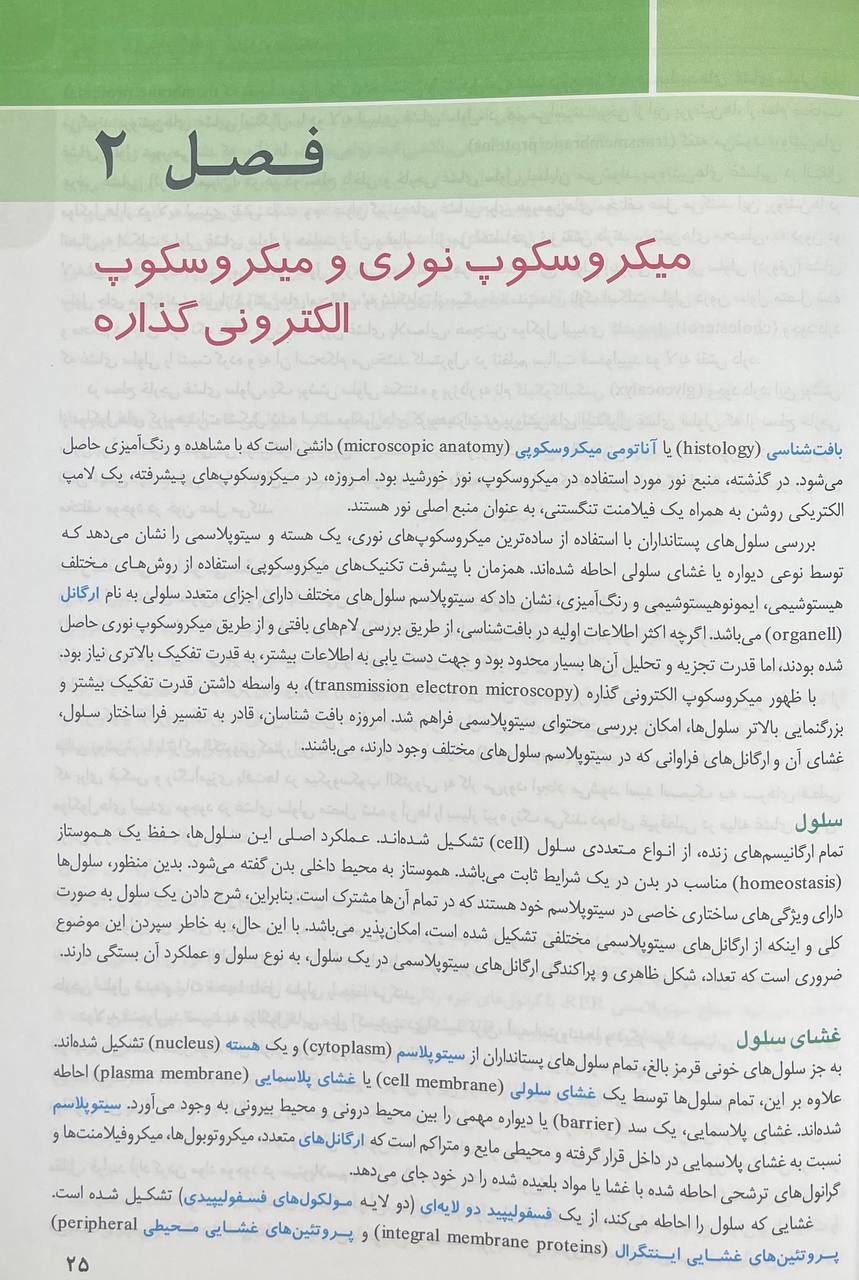 فصل ۲
میکروسکوپ نوری و میکروسکوپ
الکترونی گذاره
بافت‌شناسی (histology) یا آناتومی میکروسکوپی (microscopic anatomy) دانشی است که با مشاهده و رنگ‌آمیزی حاصل
می‌شود. در گذشته، منبع نور مورد استفاده در میکروسکوپ، نور خورشید بود. امروزه، در میکروسکوپ‌های پیشرفته، یک لامپ
الکتریکی روشن به همراه یک فیلامنت تنگستنی، به عنوان منبع اصلی نور هستند.
بررسی سلول‌های پستانداران با استفاده از ساده‌ترین میکروسکوپ‌های نوری، یک هسته و سیتوپلاسمی را نشان می‌دهد که
توسط نوعی دیواره یا غشای سلولی احاطه شده‌اند. همزمان با پیشرفت تکنیک‌های میکروسکوپی، استفاده از روش‌های مختلف
هیستوشیمی، ایمونوهیستوشیمی و رنگ‌آمیزی، نشان داد که سیتوپلاسم سلول‌های مختلف دارای اجزای متعدد سلولی به نام ارگانل
(organell) می‌باشد. اگرچه اکثر اطلاعات اولیه در بافت‌شناسی، از طریق بررسی لام‌های بافتی و از طریق میکروسکوپ نوری حاصل
شده بودند، اما قدرت تجزیه و تحلیل آن‌ها بسیار محدود بود و جهت دست یابی به اطلاعات بیشتر، به قدرت تفکیک بالاتری نیاز بود.
با ظهور میکروسکوپ الکترونی گذاره (transmission electron microscopy)، به واسطه داشتن قدرت تفکیک بیشتر و
بزرگنمایی بالاتر سلول‌ها، امکان بررسی محتوای سیتوپلاسمی فراهم شد. امروزه بافت شناسان، قادر به تفسیر فرا ساختار سلول،
غشای آن و ارگانل‌های فراوانی که در سیتوپلاسم سلول‌های مختلف وجود دارند، می‌باشند.
سلول
تمام ارگانیسم‌های زنده، از انواع متعددی سلول (cell) تشکیل شده‌اند. عملکرد اصلی این سلول‌ها، حفظ یک هموستاز
(homeostasis) مناسب در بدن در یک شرایط ثابت می‌باشد. هموستاز به محیط داخلی بدن گفته می‌شود. بدین منظور، سلول‌ها
دارای ویژگی‌های ساختاری خاصی در سیتوپلاسم خود هستند که در تمام آن‌ها مشترک است. بنابراین، شرح دادن یک سلول به صورت
کلی و اینکه از ارگانل‌های سیتوپلاسمی مختلفی تشکیل شده است، امکان‌پذیر می‌باشد. با این حال، به خاطر سپردن این موضوع
ضروری است که تعداد، شکل ظاهری و پراکندگی ارگانل‌های سیتوپلاسمی در یک سلول، به نوع سلول و عملکرد آن بستگی دارند.
غشای سلول
به جز سلول‌های خونی قرمز بالغ، تمام سلول‌های پستانداران از سیتوپلاسم (cytoplasm) و یک هسته (nucleus) تشکیل شده‌اند.
علاوه بر این، تمام سلول‌ها توسط یک غشای سلولی (cell membrane) یا غشای پلاسمایی (plasma membrane) احاطه
شده‌اند. غشای پلاسمایی، یک سد (barrier) یا دیواره مهمی را بین محیط درونی و محیط بیرونی به وجود می‌آورد. سیتوپلاسم
نسبت به غشای پلاسمایی در داخل قرار گرفته و محیطی مایع و متراکم است که ارگانل‌های متعدد، میکروتوبول‌ها، میکروفیلامنت‌ها و
گرانول‌های ترشحی احاطه شده با غشا یا مواد بلعیده شده را در خود جای می‌دهد.
غشایی که سلول را احاطه می‌کند، از یک فسفولیپید دو لایه‌ای (دو لایه مولکول‌های فسفولیپیدی) تشکیل شده است.
پروتئین‌های غشایی اینتگرال (integral membrane proteins) و پروتئین‌های غشایی محیطی (peripheral
۲۵